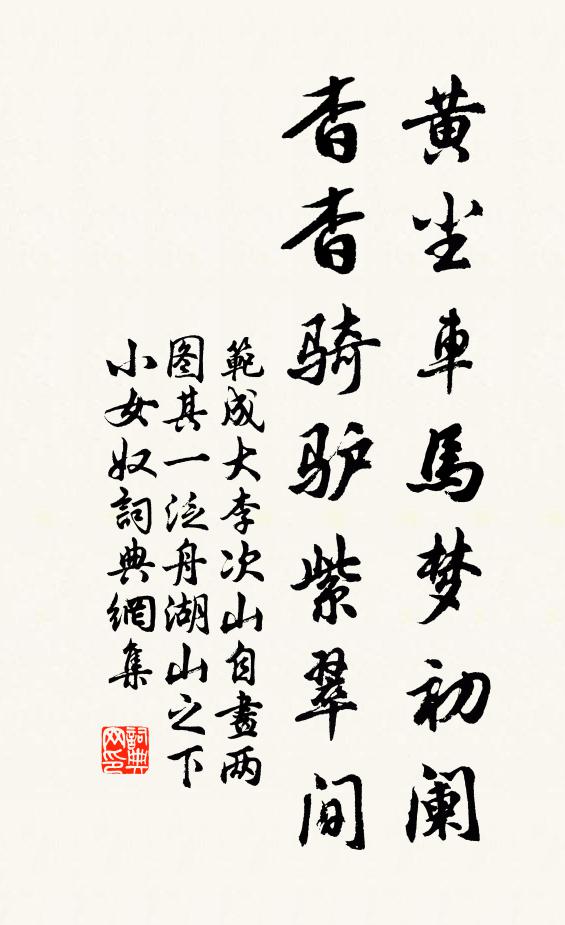 黄尘車馬梦初阑
杳杳骑驴紫翠间
範成大李次山自畫两
图其一泛舟湖山之下
小女奴詞典網集
詞典网印